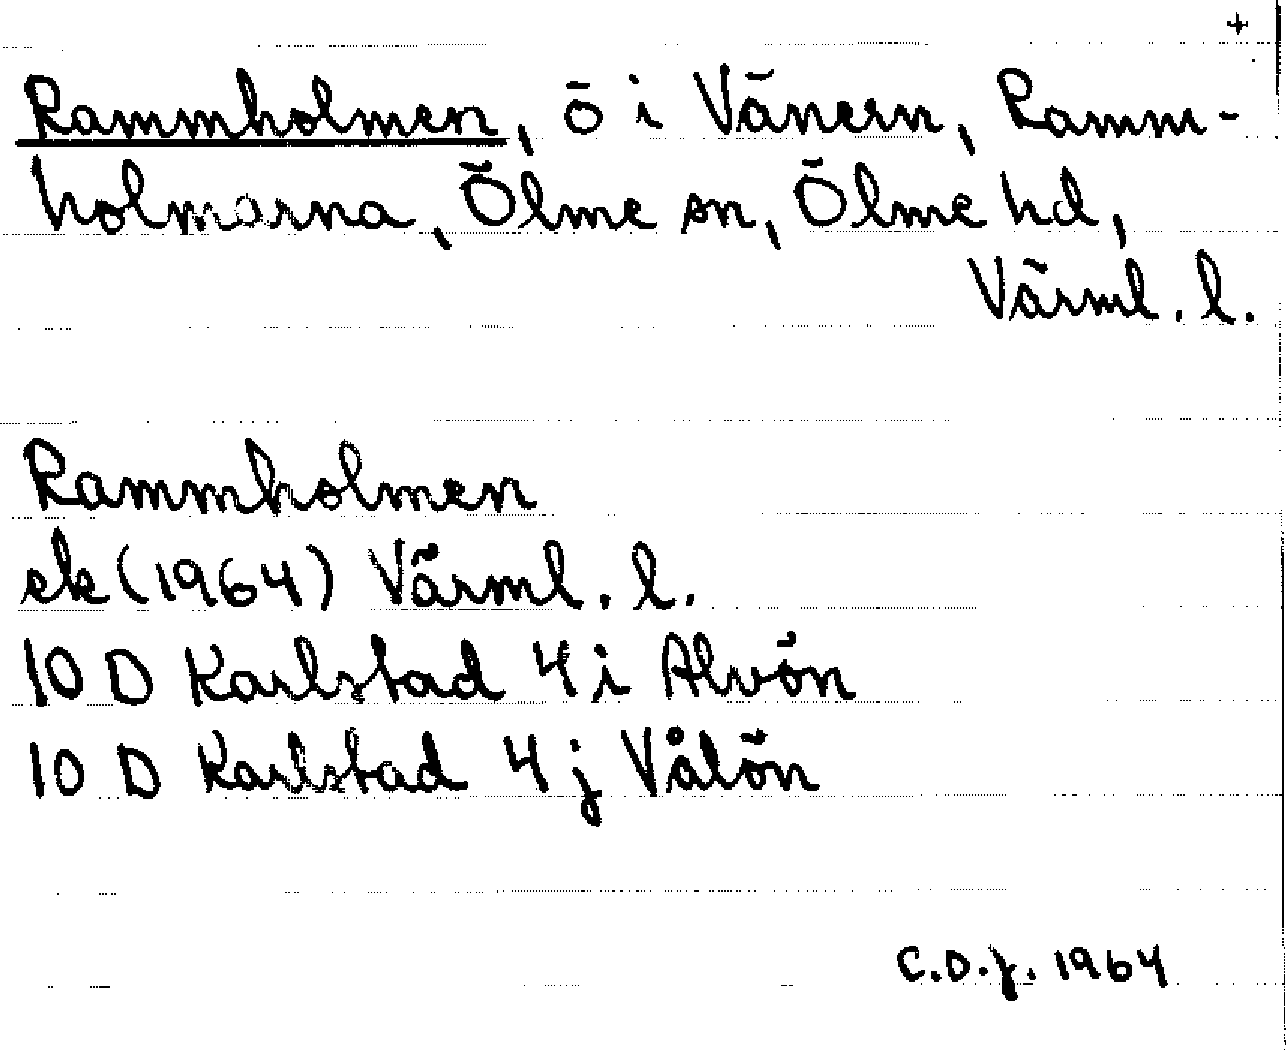 +
Rammholmen, ö i Vänern, Ramm-
holmarna, Ölme sn, Ölme hd,
Värml. l.
Rammholmen
ek (1964) Värml. l.
10 D Karlstad 4 i Alvön
10 D Karlstad 4 j Vålön
C.D.J. 1964